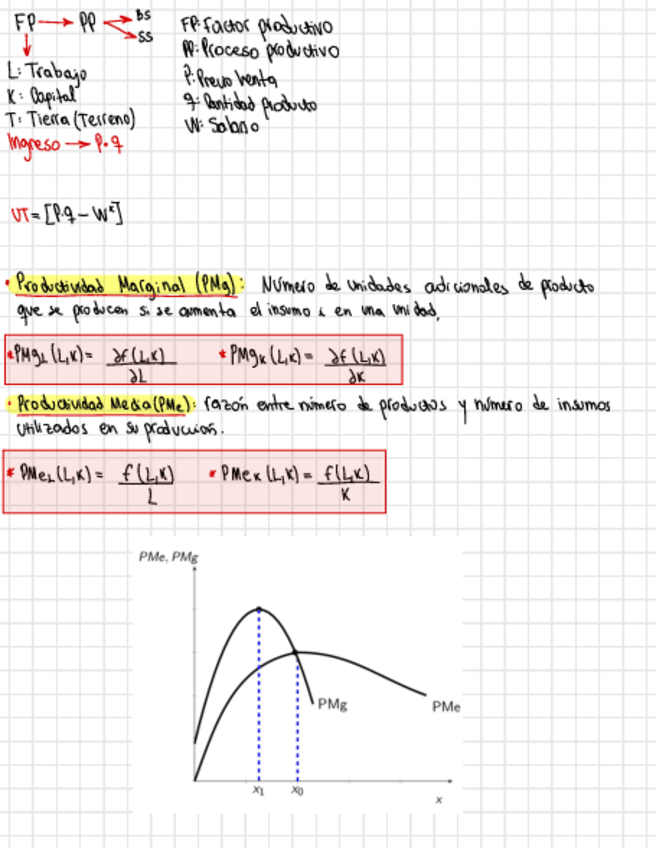 FP → PP Bs
SS
L: Trabajo
K: Capital
T: Tierra (Terreno)
Ingreso → P·q
FP: Factor productivo
PP: Proceso productivo
P: Precio Venta
q: Cantidad producto
W: Salario
UT = [P·q - W
• Productividad Marginal (PMg): Número de unidades adicionales de producto
que se producen si se aumenta el insumo i en una unidad.
*PMgL (L,K) = ∂f(L,K) / ∂L * PMgK (L,K) = ∂f(L,K) / ∂K
• Productividad Media (PMe): razón entre número de productos y número de insumos
utilizados en su produccion.
* PMeL (L,K) = f(L,K) / L * PMeK (L,K) = f(L,K) / K
PMe, PMg
PMg
PMe
x₁ x₀
x